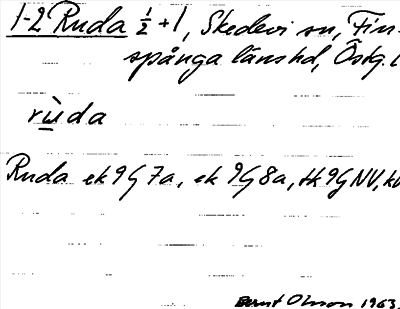 1-2 Ruda ½ +1, Skedevi sn, Fin-
spånga länshd, Östg. l
rùda
Ruda ek 9G 7a, ek 9G 8a, tk 9G NV, kv
Bernt Olsson 1963.